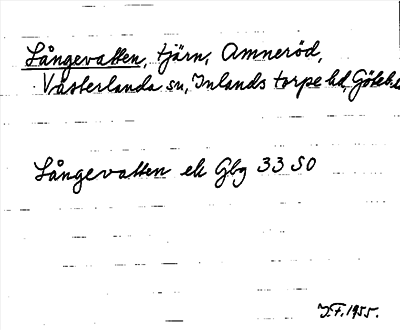 Långevatten, tjärn, Amneröd,
Västerlanda sn, Inlands torpe hd, Göteb.
Långevatten ek Gbg 33 SO
J.F. 1955.